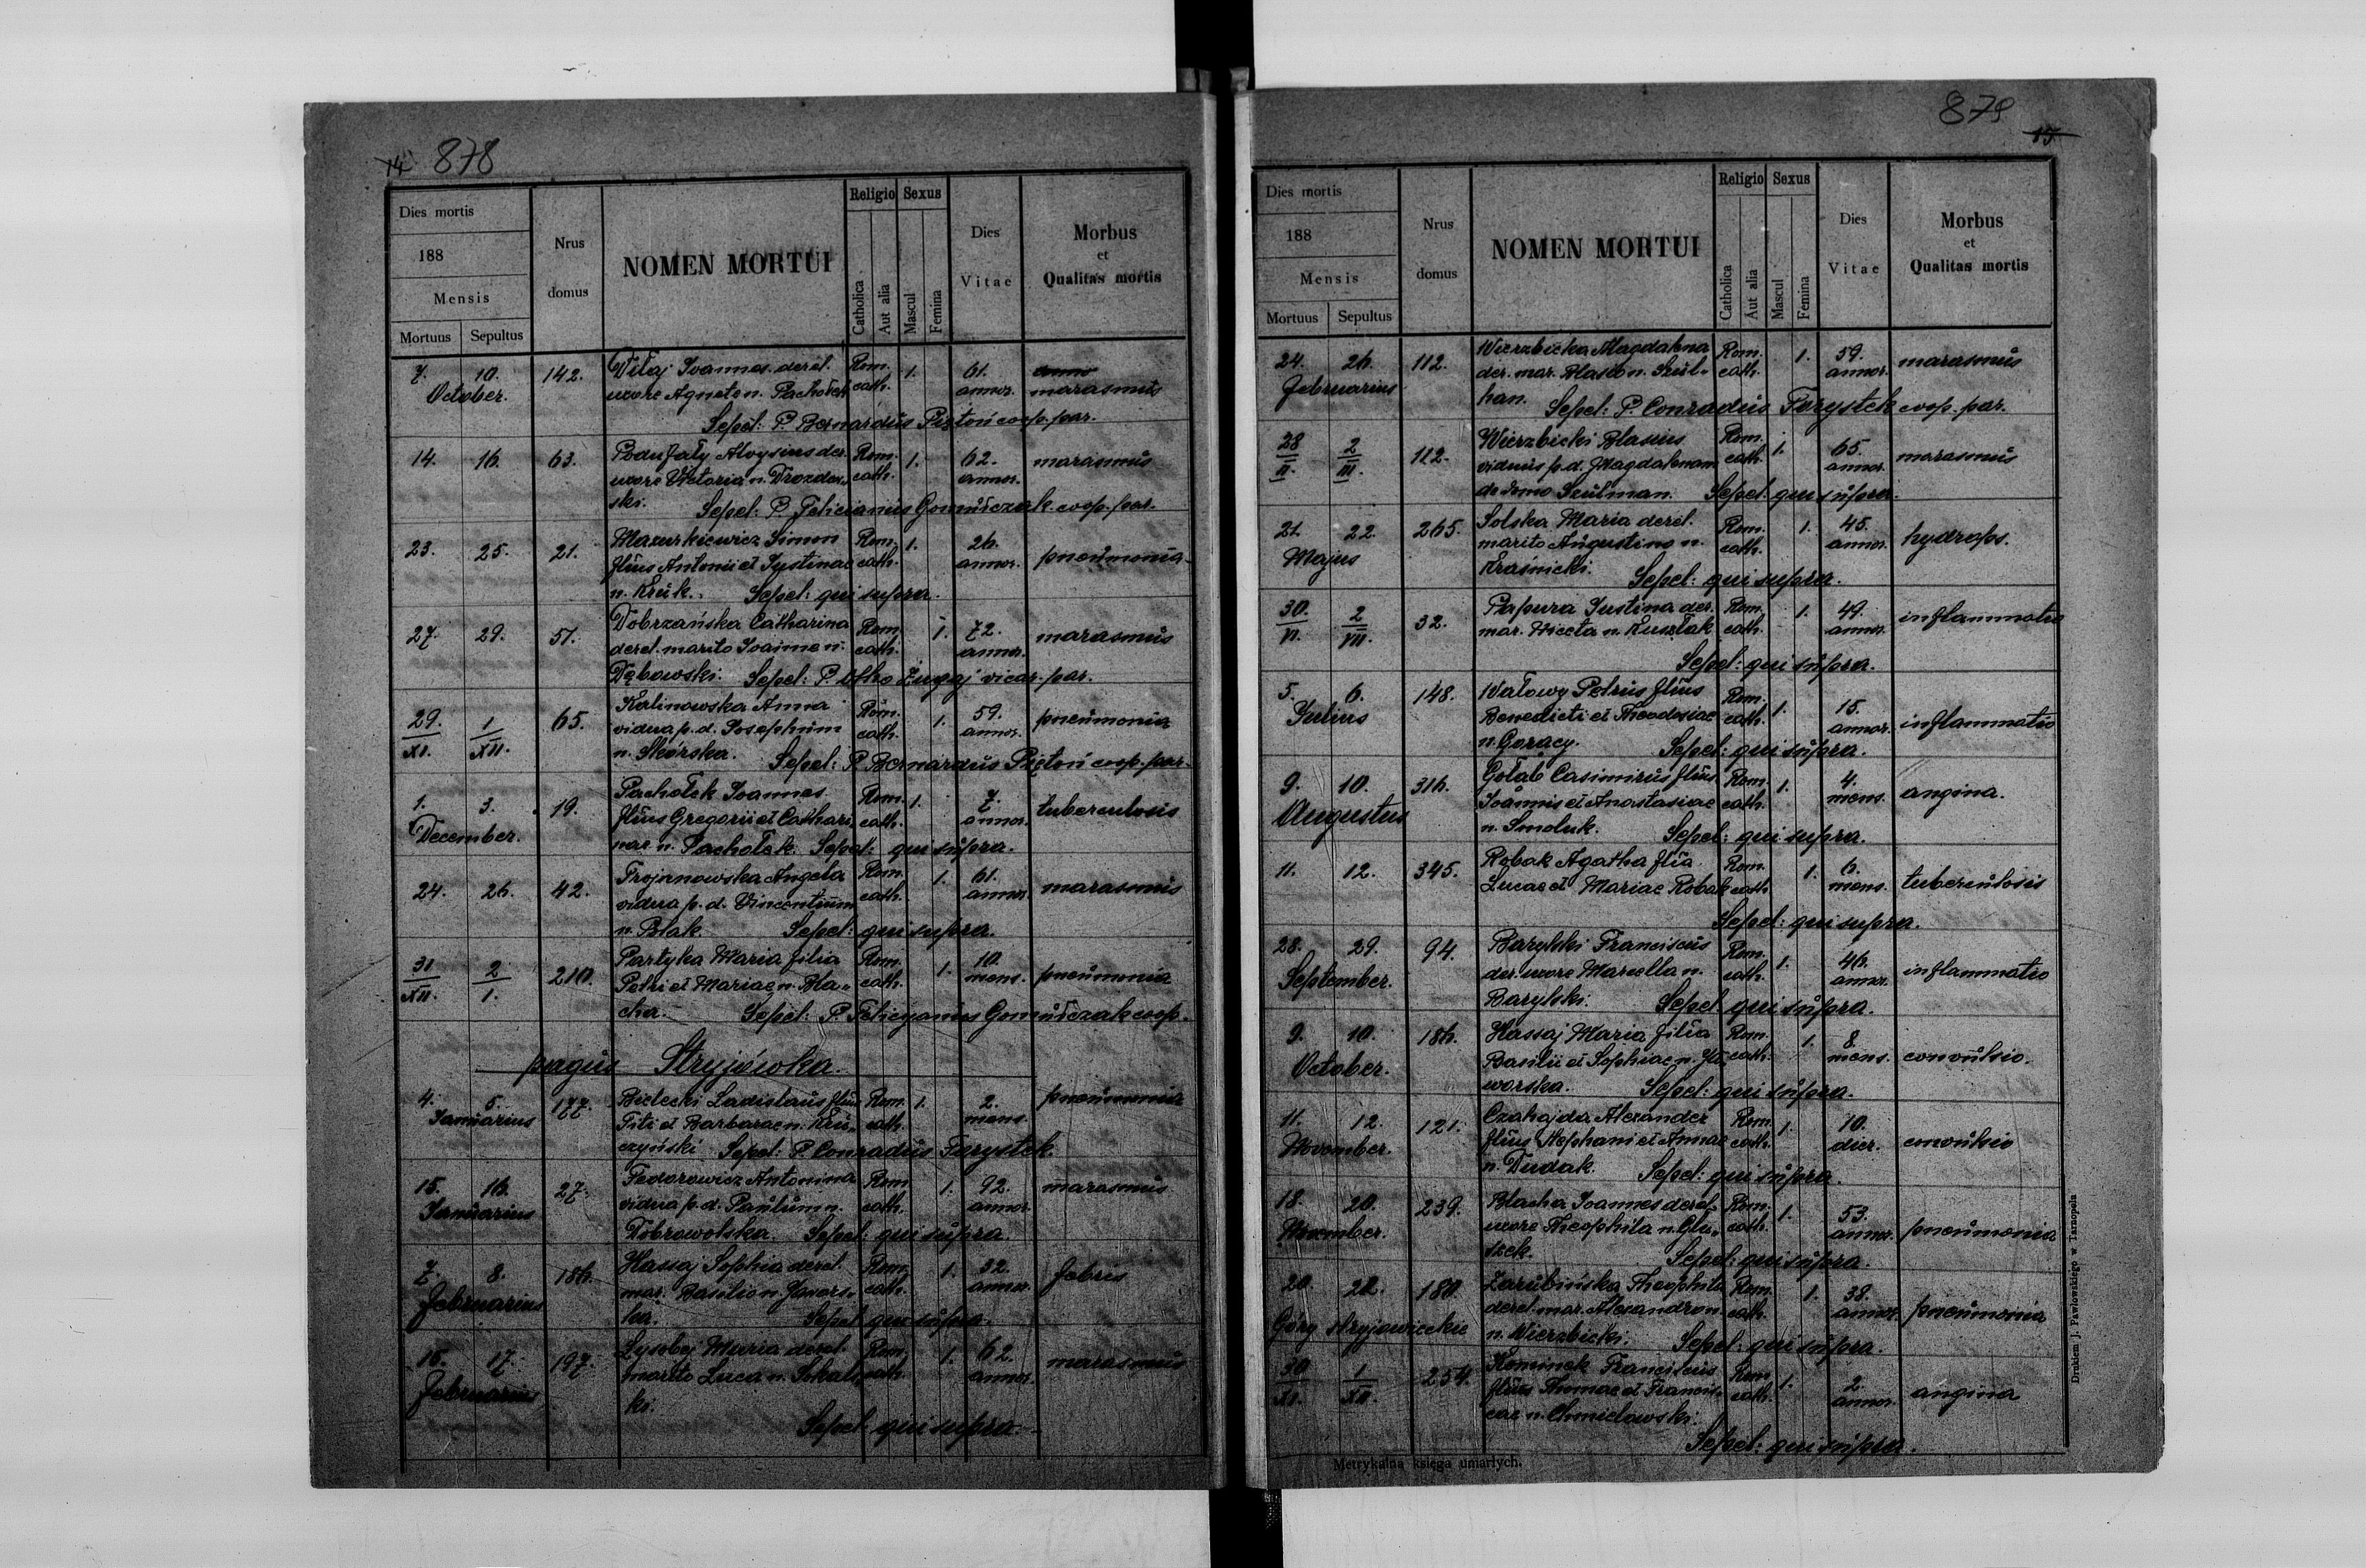 14 878
Dies mortis
188
Mensis
Mortuus Sepultus
Nrus domus
NOMEN MORTUI
Religio
Catholica
Aut alia
Sexus
Mascul
Femina
Dies Vitae
Morbus et Qualitas mortis
7. 10. October. 142. Witaj Joannes derel. Rom. cath. 1. 61. annor. marasmus
uxore Agnete n. Pachołek
Sepel: P. Bernardus Pizton coop. par.
14. 16. 63. Podufały Aloysius der. Rom. cath. 1. 62. annor. marasmus
uxore Victoria n. Drozdow-
ski. Sepel: P. Felicianus Gomułczak coop. par.
23. 25. 21. Mazurkiewicz Simon Rom. cath. 1. 26. annor. pneumonia
filius Antonii et Justinae
n. Kruk. Sepel: qui supra.
27. 29. 51. Dobrzańska Catharina Rom. cath. 1. 72. annor. marasmus
derel. marito Joanne n.
Dębowski. Sepel: P. Otho Żugaj vicar. par.
29/XI. 1/XII. 65. Kalinowska Anna Rom. cath. 1. 59. annor. pneumonia
vidua p. d. Josephum
n. Skórska. Sepel: P. Bernardus Pizton coop. par.
1. 3. December. 19. Pachołek Joannes Rom. cath. 1. 7. annor. tuberculosis
filius Gregorii et Cathari-
nae n. Pachołek. Sepel: qui supra.
24. 26. 42. Trojanowska Angela Rom. cath. 1. 61. annor. marasmus
vidua p. d. Vincentium
n. Blak. Sepel: qui supra.
31/XII. 2/1. 210. Partyka Maria filia Rom. cath. 1. 10. mens. pneumonia
Petri et Mariae n. Bla-
cha. Sepel: P. Felicyanus Gomułczak coop.
pagus Stryjówka.
4. 5. Januarius 177. Bielecki Ladislaus filius Rom. cath. 1. 2. mens. pneumonia
Titi et Barbarae n. Kru-
czyński Sepel: P. Conradus Farystek.
15. 16. Januarius 27. Fedorowicz Antonina Rom. cath. 1. 92. annor. marasmus
vidua p. d. Paulum n.
Dobrowolska. Sepel: qui supra.
7. 8. Februarius 186. Hassaj Sophia derel. Rom. cath. 1. 32. annor. febris
mar. Basilio n. Javors-
ka. Sepel: qui supra.
16. 17. Februarius 197. Łysobej Maria derel. Rom. cath. 1. 62. annor. marasmus
marito Luca n. Sokals-
ki.
Sepel: qui supra.
879
15
Dies mortis
188
Mensis
Mortuus Sepultus
Nrus domus
NOMEN MORTUI
Religio
Catholica
Aut alia
Sexus
Mascul
Femina
Dies Vitae
Morbus et Qualitas mortis
24. 26. Februarius 112. Wierzbicka Magdalena Rom. cath. 1. 59. annor. marasmus
der. mar. Blasio n. Szul-
han. Sepel: P. Conradus Farystek coop. par.
28/II. 2/III. 112. Wierzbicki Blasius Rom. cath. 1. 65. annor. marasmus
viduus p. d. Magdalenam
de domo Szulman. Sepel: qui supra.
21. 22. Majus 265. Solska Maria derel. Rom. cath. 1. 45. annor. hydrops.
marito Augustino n.
Kraśnicki. Sepel: qui supra.
30./VI. 2/VII. 32. Papura Justina der. Rom. cath. 1. 49. annor. inflammatio
mar. Niceta n. Kusztak
Sepel: qui supra.
5. 6. Julius 148. Watowy Petrus filius Rom. cath. 1. 15. annor. inflammatio
Benedicti et Theodosiae
n. Goracy. Sepel: qui supra.
9. 10. Augustus 316. Gołąb Casimirus filius Rom. cath. 1. 4. mens. angina.
Joannis et Anastasiae
n. Smoluk. Sepel: qui supra.
11. 12. 345. Robak Agatha filia Rom. cath. 1. 6. mens. tuberculosis
Lucae et Mariae Robak
Sepel: qui supra.
28. 29. September. 94. Barylski Franciscus Rom. cath. 1. 46. annor. inflammatio
der. uxore Marcella n.
Barylski. Sepel: qui supra.
9. 10. October. 186. Hassaj Maria filia Rom. cath. 1. 8. mens. convulsio.
Basilii et Sophiae n. Ja-
worska. Sepel: qui supra.
11. 12. November. 121. Czahajda Alexander Rom. cath. 1. 10. dier. convulsio
filius Stephani et Annae
n. Dudak. Sepel: qui supra.
18. 20. November. 239. Blacha Joannes derel. Rom. cath. 1. 53. annor. pneumonia
uxore Theophila n. Olu-
szek. Sepel: qui supra.
20. 22. 180. Zarubińska Theophila Rom. cath. 1. 38. annor. pneumonia
derel. mar. Alexandro n.
Góry stryjowieckie n. Wierzbicki. Sepel: qui supra.
30/XI. 1/XII. 254. Kominek Franciscus Rom. cath. 1. 2. annor. angina
filius Thomae et Francis-
cae n. Chmielowski.
Sepel: qui supra.
Metrykalna księga umarłych.
Drukiem J. Pawłowskiego w Tarnopolu